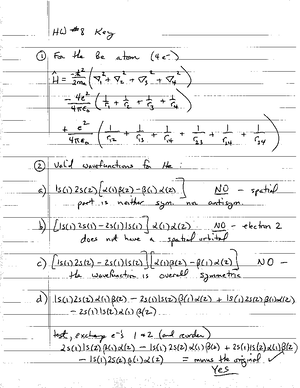 HW #8 Key
① For the Be atom (4e⁻)
Ĥ = -ħ²/2mₑ (∇₁² + ∇₂² + ∇₃² + ∇₄²)
- 4e²/4πε₀ (1/r₁ + 1/r₂ + 1/r₃ + 1/r₄)
+ e²/4πε₀ (1/r₁₂ + 1/r₁₃ + 1/r₁₄ + 1/r₂₃ + 1/r₂₄ + 1/r₃₄)
② Valid wavefunctions for He :
a) 1s(1)2s(2)[α(1)β(2) - β(1)α(2)] NO - spatial
part is neither sym. nor antisym.
b) [1s(1)2s(1) - 2s(1)1s(1)] α(1)α(2) NO - electron 2
does not have a spatial orbital
c) [1s(1)2s(2) - 2s(1)1s(2)][α(1)β(2) - β(1)α(2)] NO -
the wavefunction is overall symmetric
d) 1s(1)2s(2)α(1)β(2) - 2s(1)1s(2)β(1)α(2) + 1s(1)2s(2)β(1)α(2)
- 2s(1)1s(2)α(1)β(2)
test, exchange e⁻'s 1→2 (and reorder)
2s(1)1s(2)β(1)α(2) - 1s(1)2s(2)α(1)β(2) + 2s(1)1s(2)α(1)β(2)
- 1s(1)2s(2)β(1)α(2) = minus the original ✓
Yes